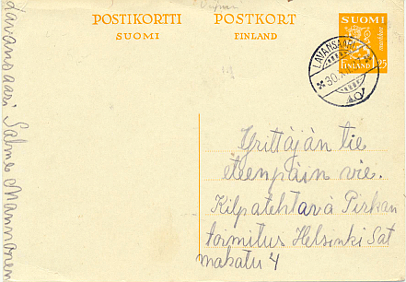 POSTIKORTTI
SUOMI
POSTKORT
FINLAND
SUOMI
FINLAND
25
LAVANSAARI
30.
Yrittäjän tie
eteenpäin vie.
Kilpatehtävä Pirkan
toimitus Helsinki Sat
makatu 4
Lavansaari Salme Mannonen